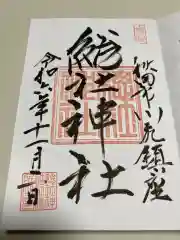 秋田市川尻鎮座
総社神社
令和六年十一月一日